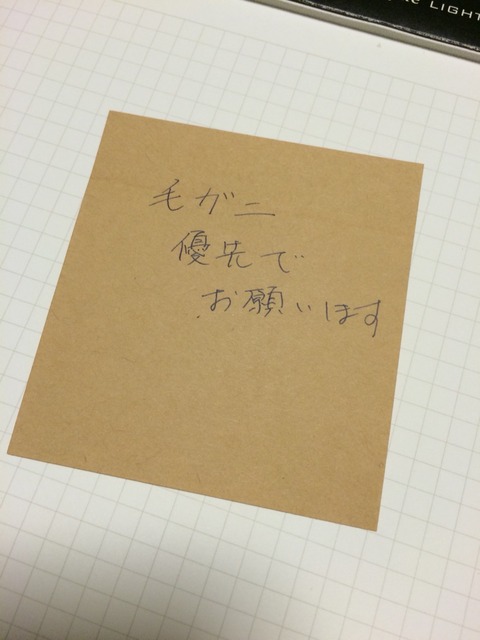 LIGHT
毛ガニ
優先で
お願いします